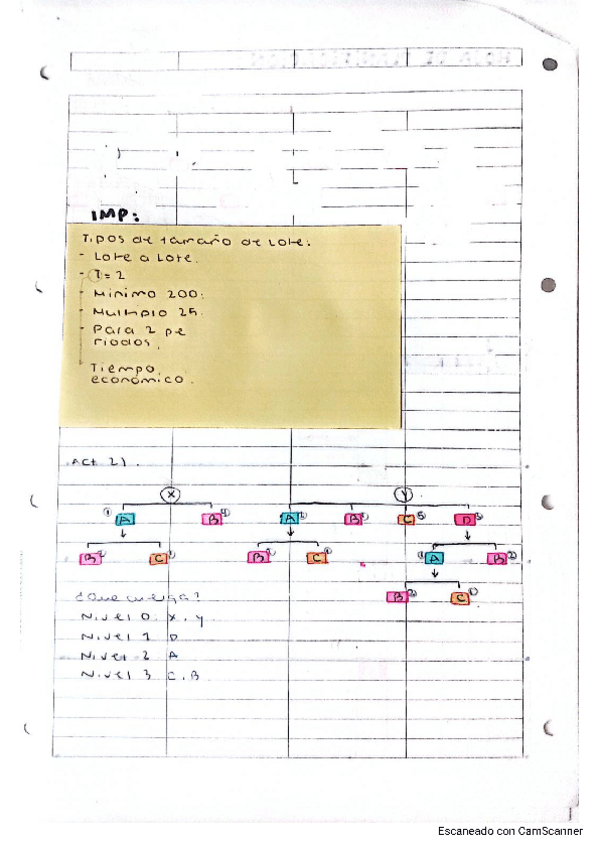 IMP:
Tipos de tamaño de Lote:
- Lote a Lote.
- T = 2
- Minimo 200.
- Multiplo 25.
- Para 2 pe
riodos.
Tiempo
económico.
Act 2).
X Y
A B A B C D
B C B C A B
B C
Nivel 0: X, Y
Nivel 1 D
Nivel 2 A
Nivel 3 C, B
Escaneado con CamScanner